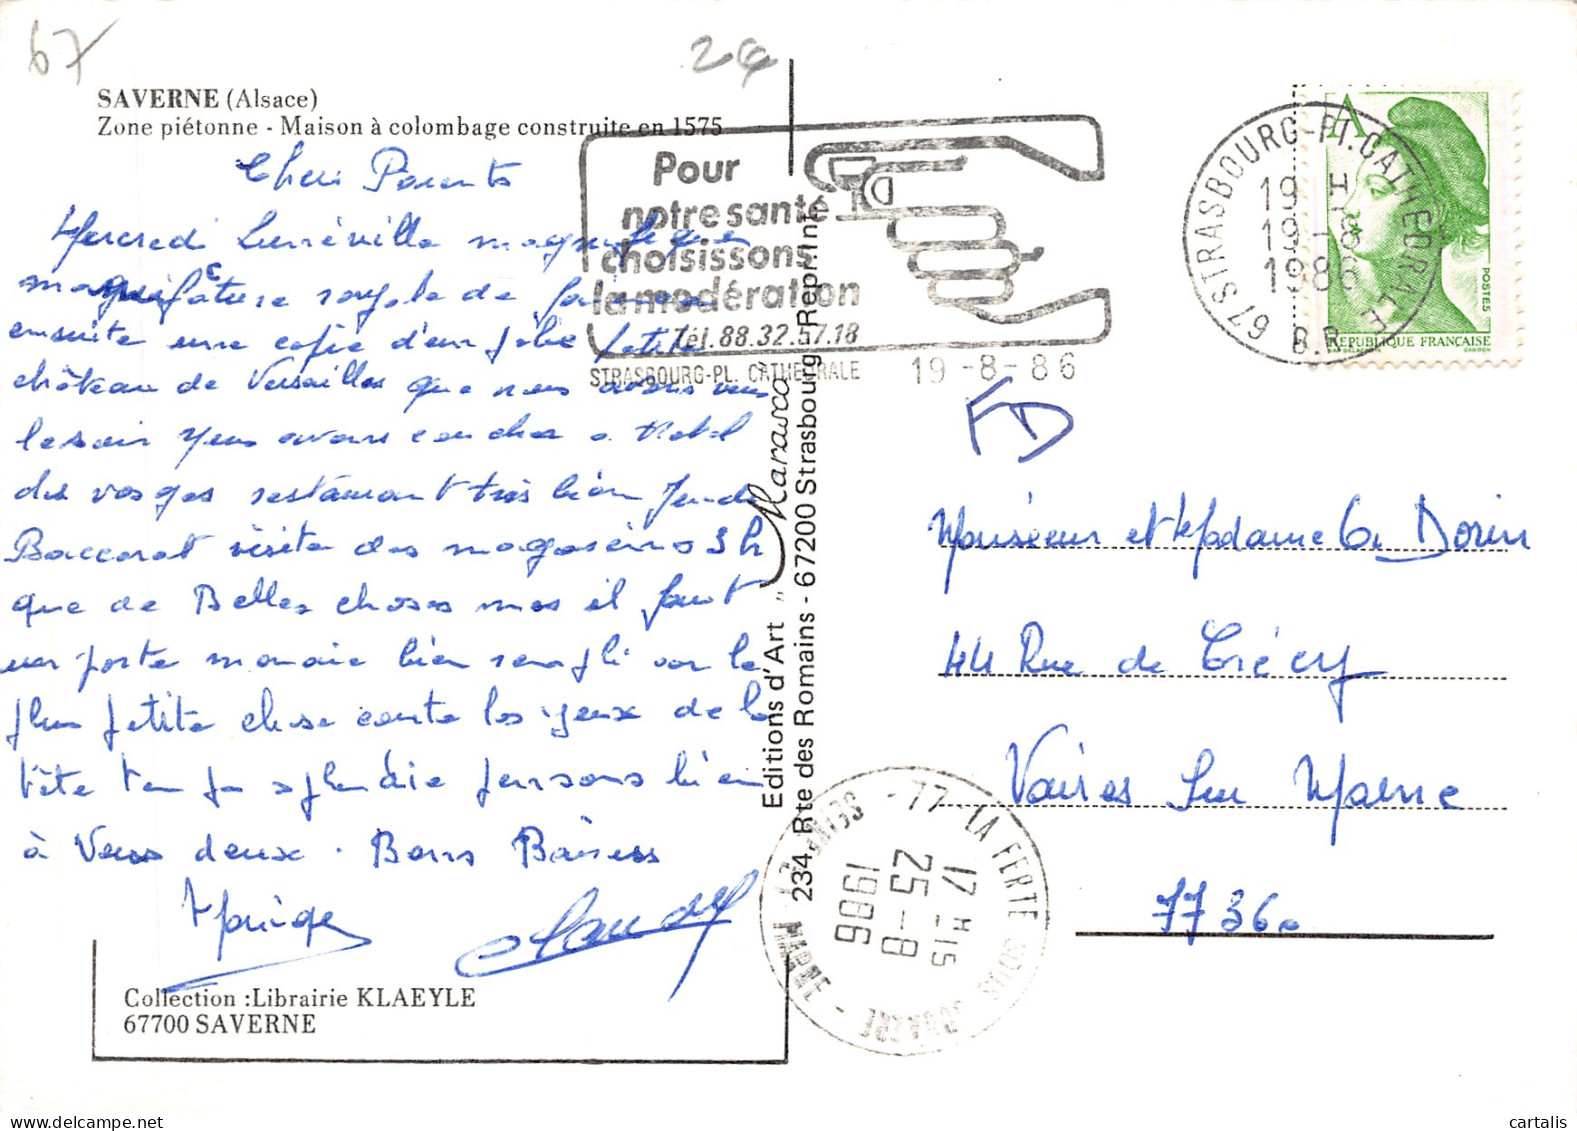 67
24
SAVERNE (Alsace)
Zone piétonne - Maison à colombage construite en 1575
Cheri Parents
Mercredi Lunéville magnifique
manifacture royale de
ensuite une copie d'un jolie petite
château de Versailles que nous avons vus
le soir nous avons coucher a Hotel
des vosges restaurant très bien Jeudi
Baccarat visite des magasins 3h
que de Belles choses mes il faut
un porte monaie bien rempli car la
plus petite chose coute les yeux de la
tête temps splendide pensons bien
à Vous deux. Bons Baisers
Claude
Collection :Librairie KLAEYLE
67700 SAVERNE
Editions d'Art „Marasco"
234, Rte des Romains - 67200 Strasbourg Repr. Int.
Pour
notre santé
choisissons
la modération
Tél. 88.32.57.18
STRASBOURG-PL. CATHEDRALE 19-8-86
67 STRASBOURG-Pl. CATHEDRALE B.R.
19 H
19-8
1986
A
POSTES
REPUBLIQUE FRANÇAISE
FD
Monsieur et Madame Dorin
44 Rue de Crécy
Vaires Sur Marne
77360
77 - LA FERTE SOUS JOUARRE - SEINE ET MARNE
17 H 15
25-8
1986
cartalis